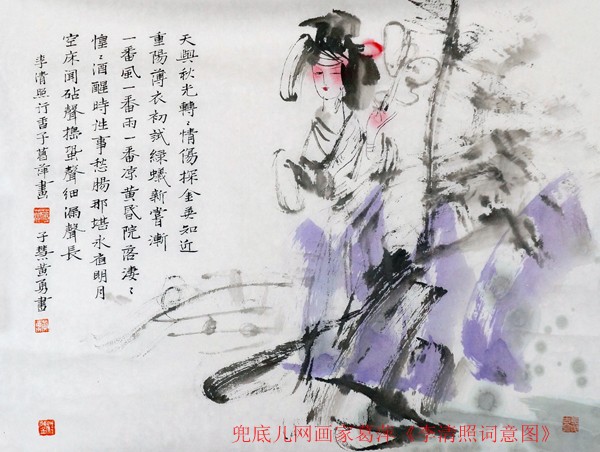 天與秋光轉〻情傷探金英知近
重陽薄衣初試綠蟻新嘗漸
一番風一番雨一番涼黃昏院落淒〻
惶〻酒醒時往事愁腸那堪永夜明月
空床聞砧聲搗蛩聲細漏聲長
李清照行香子葛萍畫
子慧黃勇書
兜底儿网画家葛萍《李清照词意图》